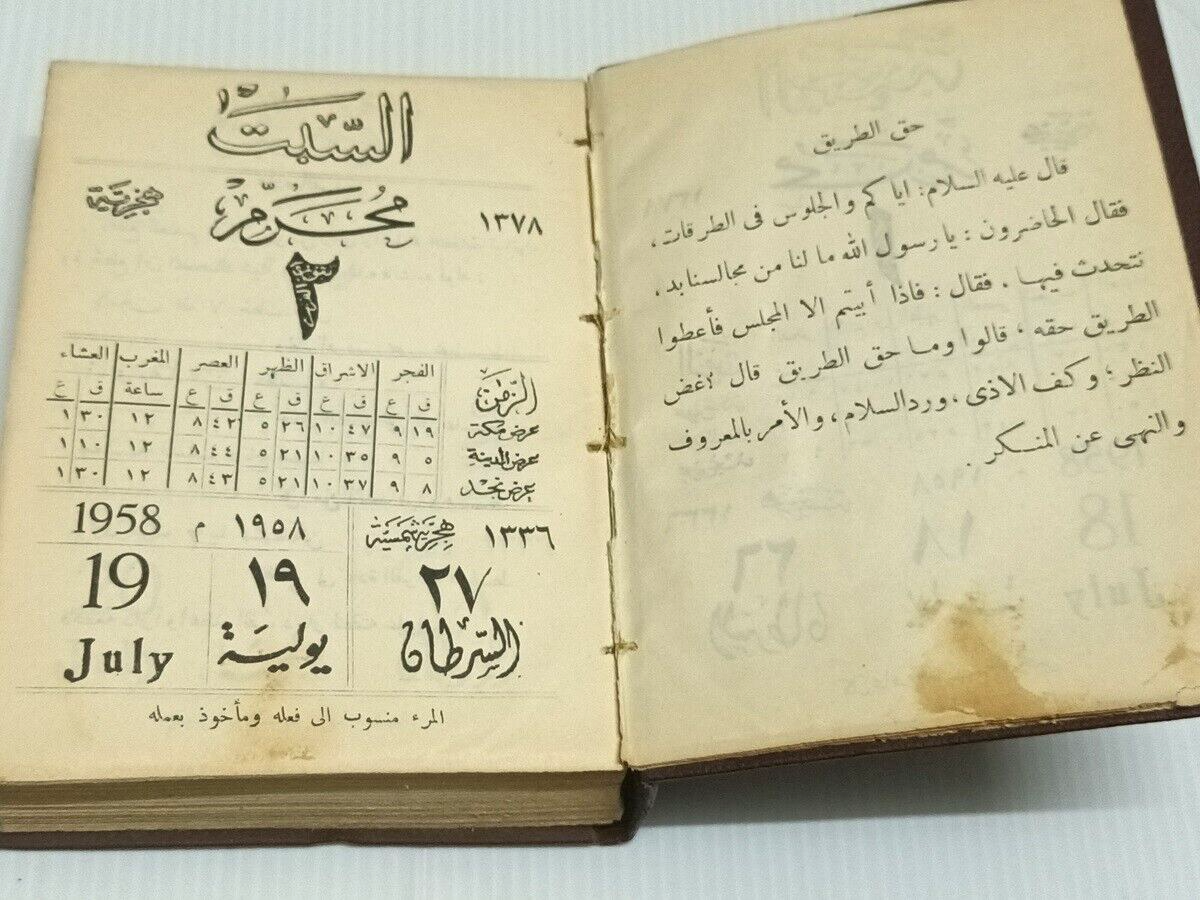 حق الطريق
قال عليه السلام: اياكم والجلوس فى الطرقات،
فقال الحاضرون: يا رسول الله ما لنا من مجالسنا بد،
نتحدث فيها، فقال: فاذا أبيتم الا المجلس فأعطوا
الطريق حقه، قالوا وما حق الطريق قال؟ غض
النظر؛ وكف الاذى، ورد السلام، والأمر بالمعروف
والنهى عن المنكر.
السبت
١٣٧٨ محرم هجرية
٢
الزمن الفجر الاشراق الظهر العصر المغرب العشاء
ق ع ق ع ق ع ق ع ساعة ق ع
عرض مكة ١٩ ٩ ٤٧ ١٠ ٢٦ ٥ ٤٢ ٨ ١٢ ٣٠ ١
عرض المدينة ٥ ٩ ٣٥ ١٠ ٢١ ٥ ٤٤ ٨ ١٢ ١٠ ١
عرض نجد ٨ ٩ ٣٧ ١٠ ٢١ ٥ ٤٣ ٨ ١٢ ٣٠ ١
١٣٣٦ هجرية شمسية ١٩٥٨ م 1958
٢٧ ١٩ 19
السرطان يولية July
المرء منسوب الى فعله ومأخوذ بعمله